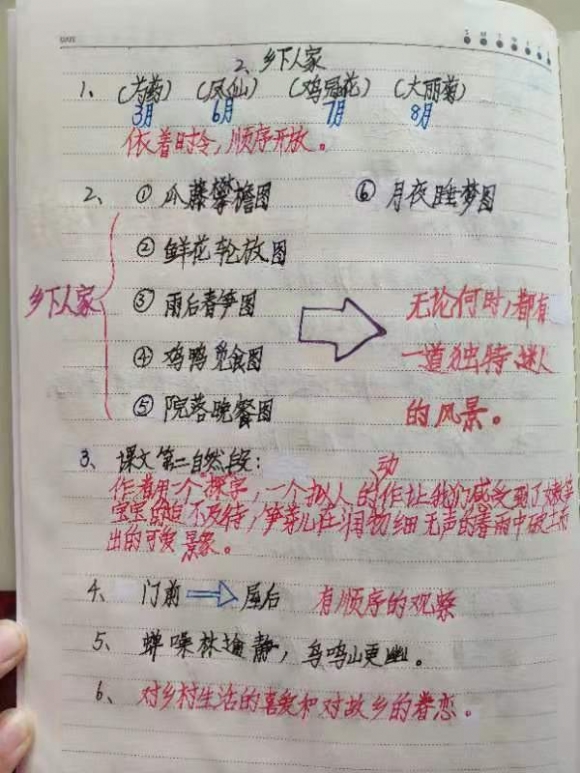 2、乡下人家
1、(芍药) (凤仙) (鸡冠花) (大丽菊)
3月 6月 7月 8月
依着时令,顺序开放。
2、① 瓜藤攀檐图 ⑥ 月夜睡梦图
② 鲜花轮放图
乡下人家 ③ 雨后春笋图 无论何时,都有
④ 鸡鸭觅食图 一道独特、迷人
⑤ 院落晚餐图 的风景。
3、课文第二自然段:
作者用一个"探"字,一个拟人的动作让我们感受到了嫩笋
宝宝的迫不及待,笋芽儿在润物细无声的春雨中破土而
出的可爱景象。
4、门前 → 屋后 有顺序的观察
5、蝉噪林逾静,鸟鸣山更幽。
6、对乡村生活的喜爱和对故乡的眷恋。